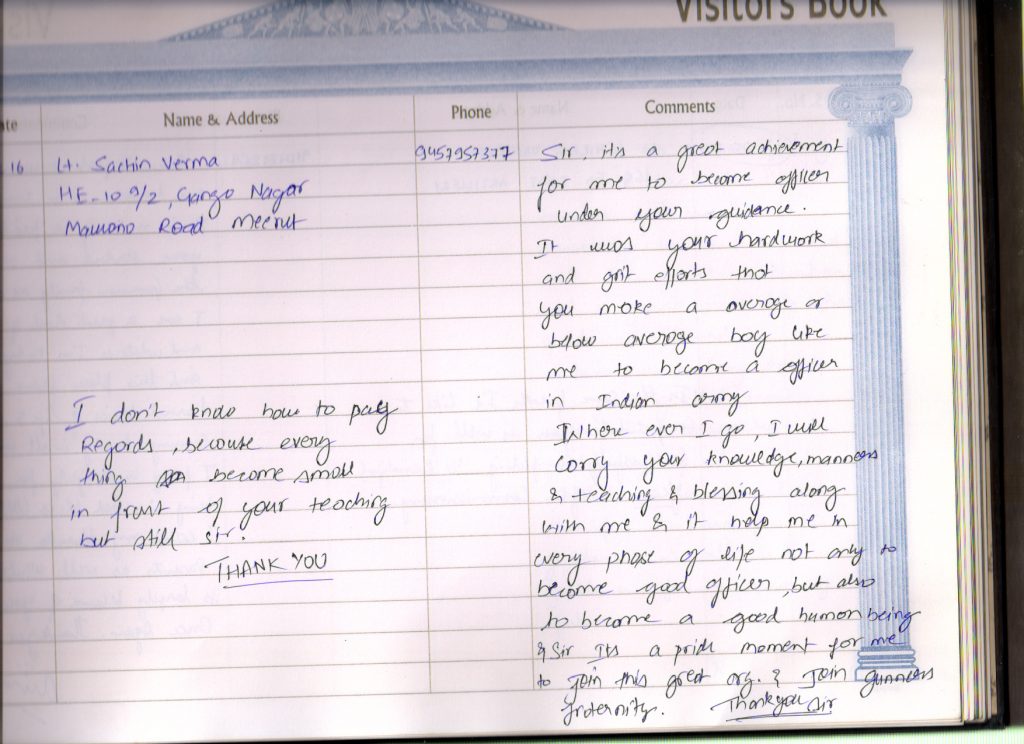 VISITORS BOOK
Name & Address
Phone
Comments
16
Lt. Sachin Verma
HE-10 9/2, Ganga Nagar
Mawana Road Meerut
9457957377
Sir, its a great achievement
for me to become officer
under your guidance.
It was your hardwork
and grit efforts that
you make a average or
below average boy like
me to become a officer
in Indian army
Where ever I go, I will
carry your knowledge, manners
& teaching & blessing along
with me & it help me in
every phase of life not only to
become good officer, but also
to become a good human being
& Sir Its a pride moment for me
to join this great org. & Join gunners
fraternity. Thankyou Sir
I don't know how to pay
Regards, because every
thing become small
in front of your teaching
but still sir.
THANK YOU